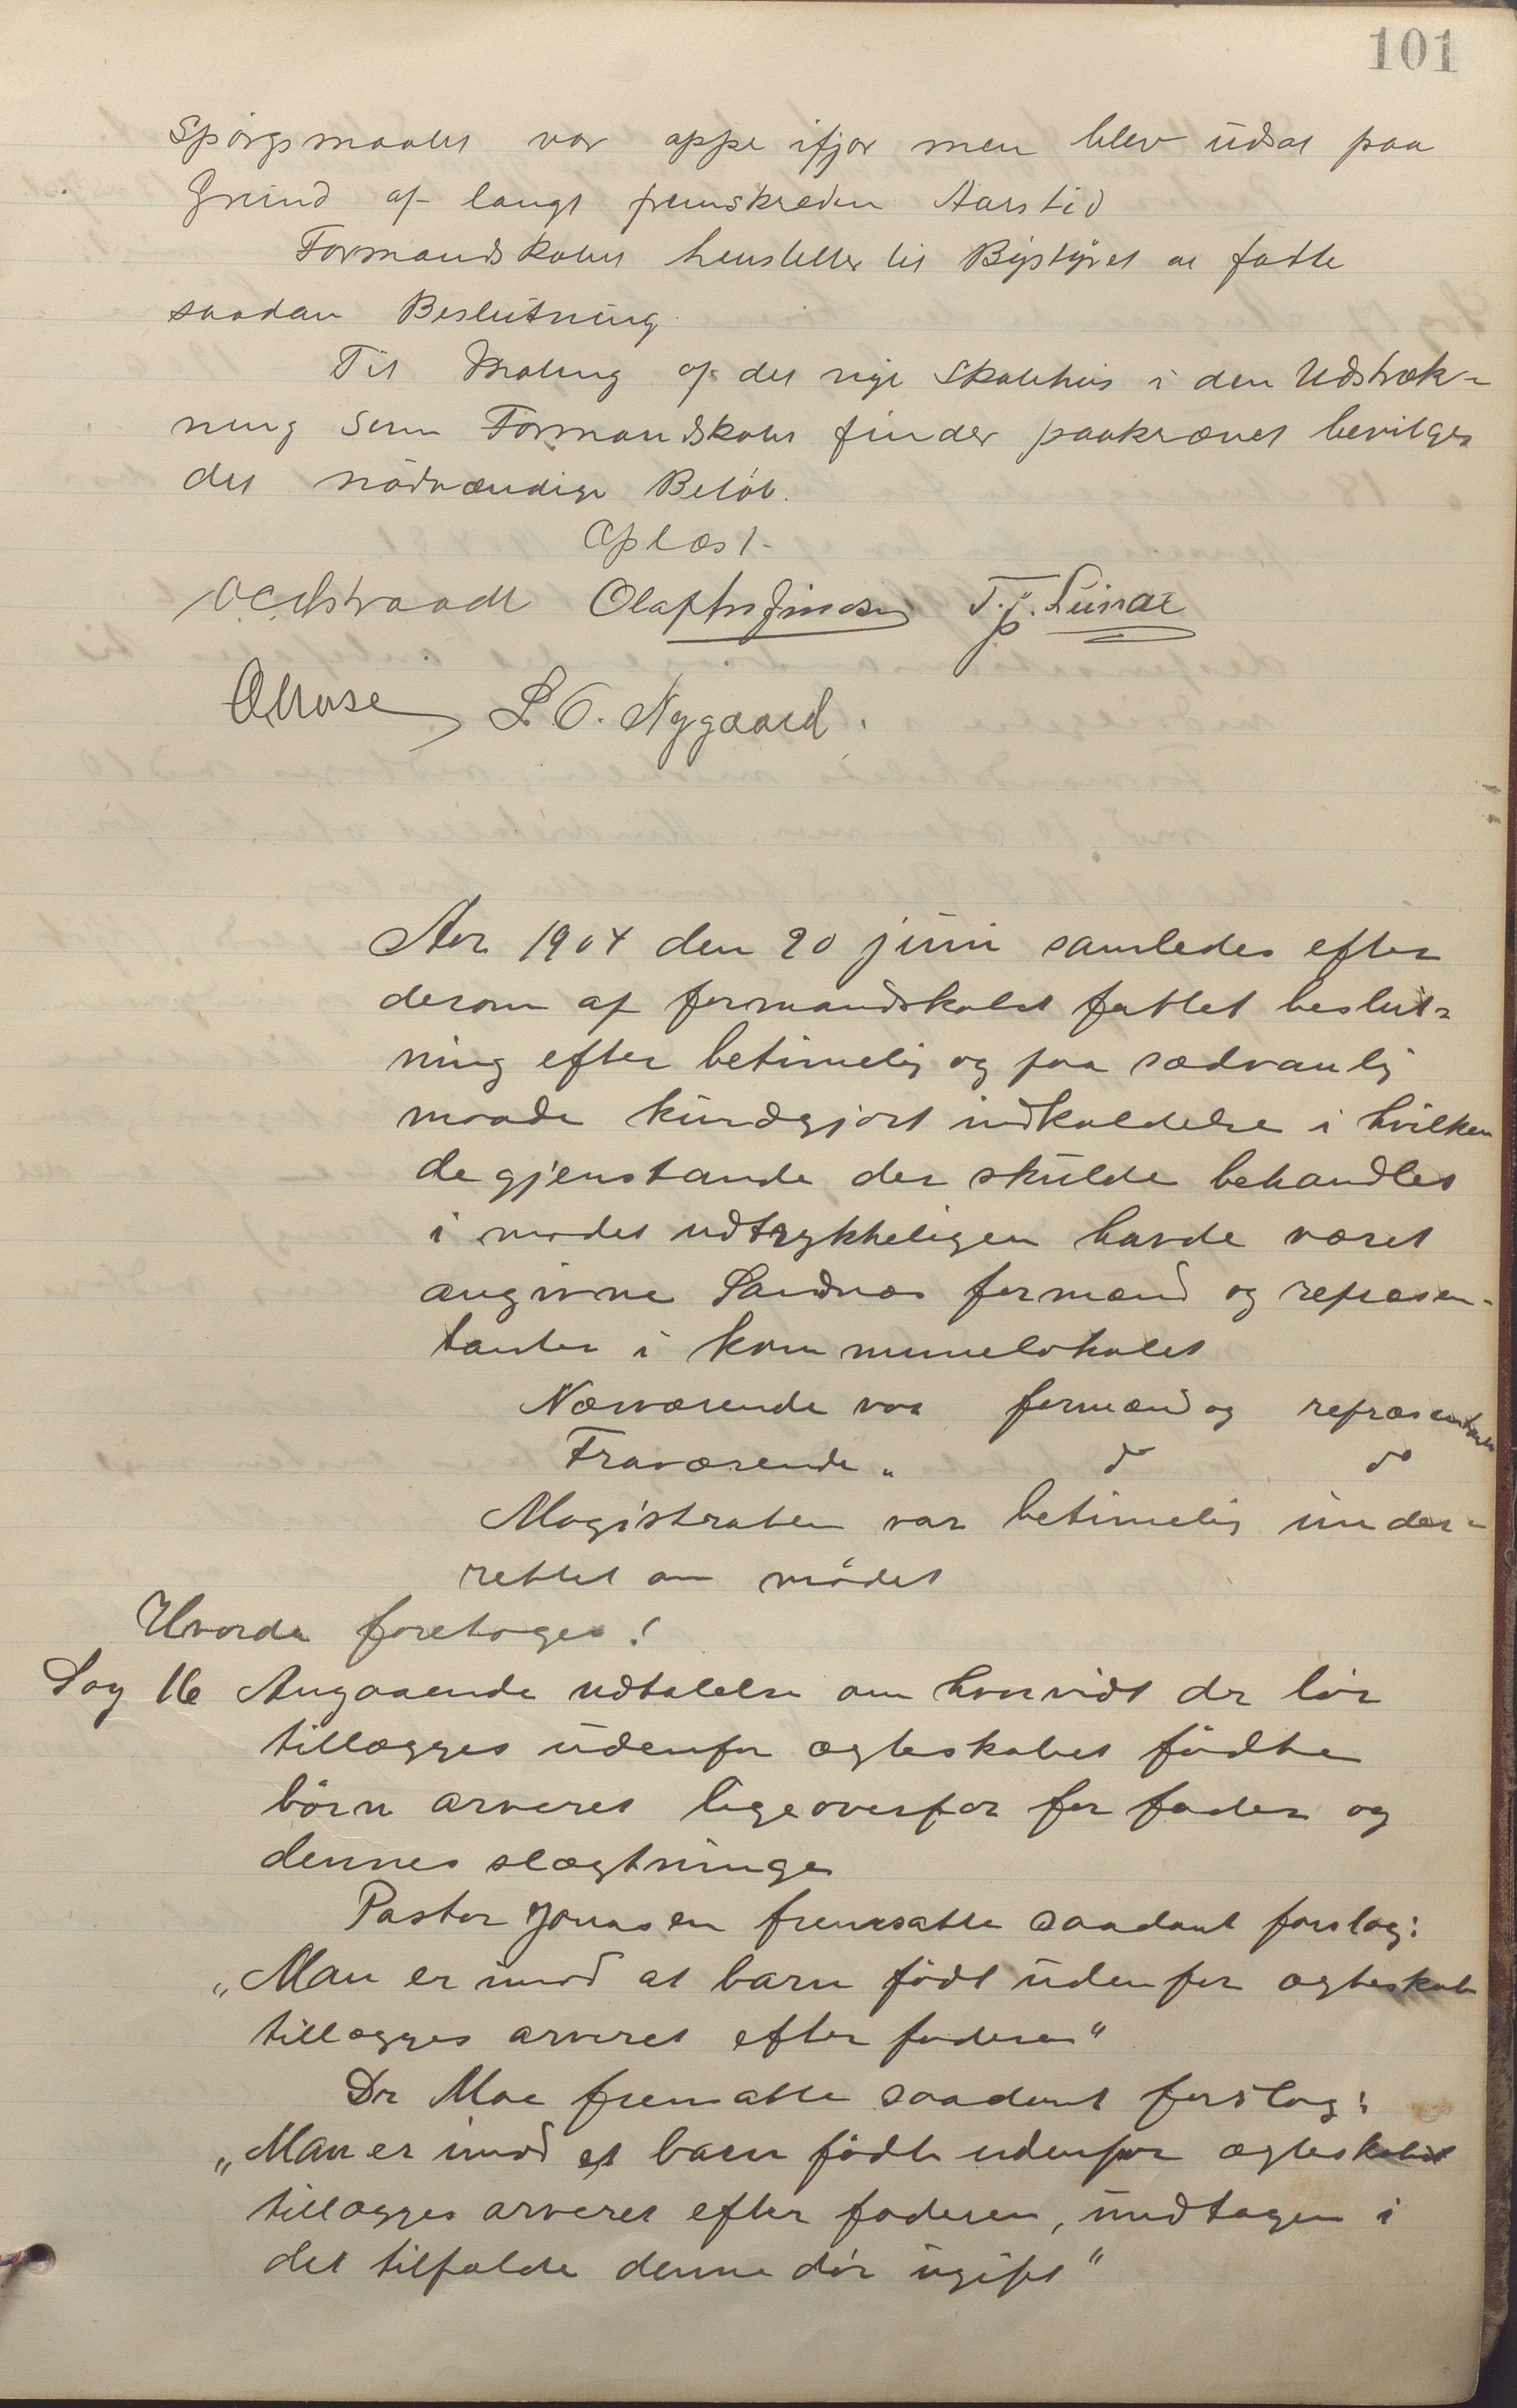 101
Spörgsmaalet var oppe ifjor men blev udsat paa
Grund af langt fremskreden Aarstid
Formandskabet henstiller til Bystyret at fatte
saadan Beslutning
Til Maling af det nye Skolehus i den Udstræk-
ning som Formandskabet finder paakrævet bevilges
det nödvændige Belöb.
Oplæst.
Olaf
L. O. Nygaard.
Aar 1904 den 20 juni samledes efter
derom af formandskabet fattet beslut-
ning efter betimelig og paa sædvanlig
maade kundgjort indkaldelse i hvilken
de gjenstande der skulde behandles
i mødet udtrykkeligen havde været
angivne Sandnes formænd og repræsen-
tanter i kommunelokalet
Nærværende var formænd og repræsentanter
Fraværende " do do
Magistraten var betimelig under-
rettet om mödet
Hvorda foretoges:
Sag 16 Angaaende udtalelse om hvorvidt der bör
tillægges udenfor ægteskabet födte
börn arveret ligeoverfor for fader og
dennes slægtninge
Pastor Jonasen fremsatte saadant forslag:
„Man er imod at barn födt udenfor ægteskab
tillægges arveret efter faderen"
Dr Moe fremsatte saadant forslag:
„Man er imod at barn födt udenfor ægteskabet
tillægges arveret efter faderen, undtagen i
det tilfælde denne dör ugift"